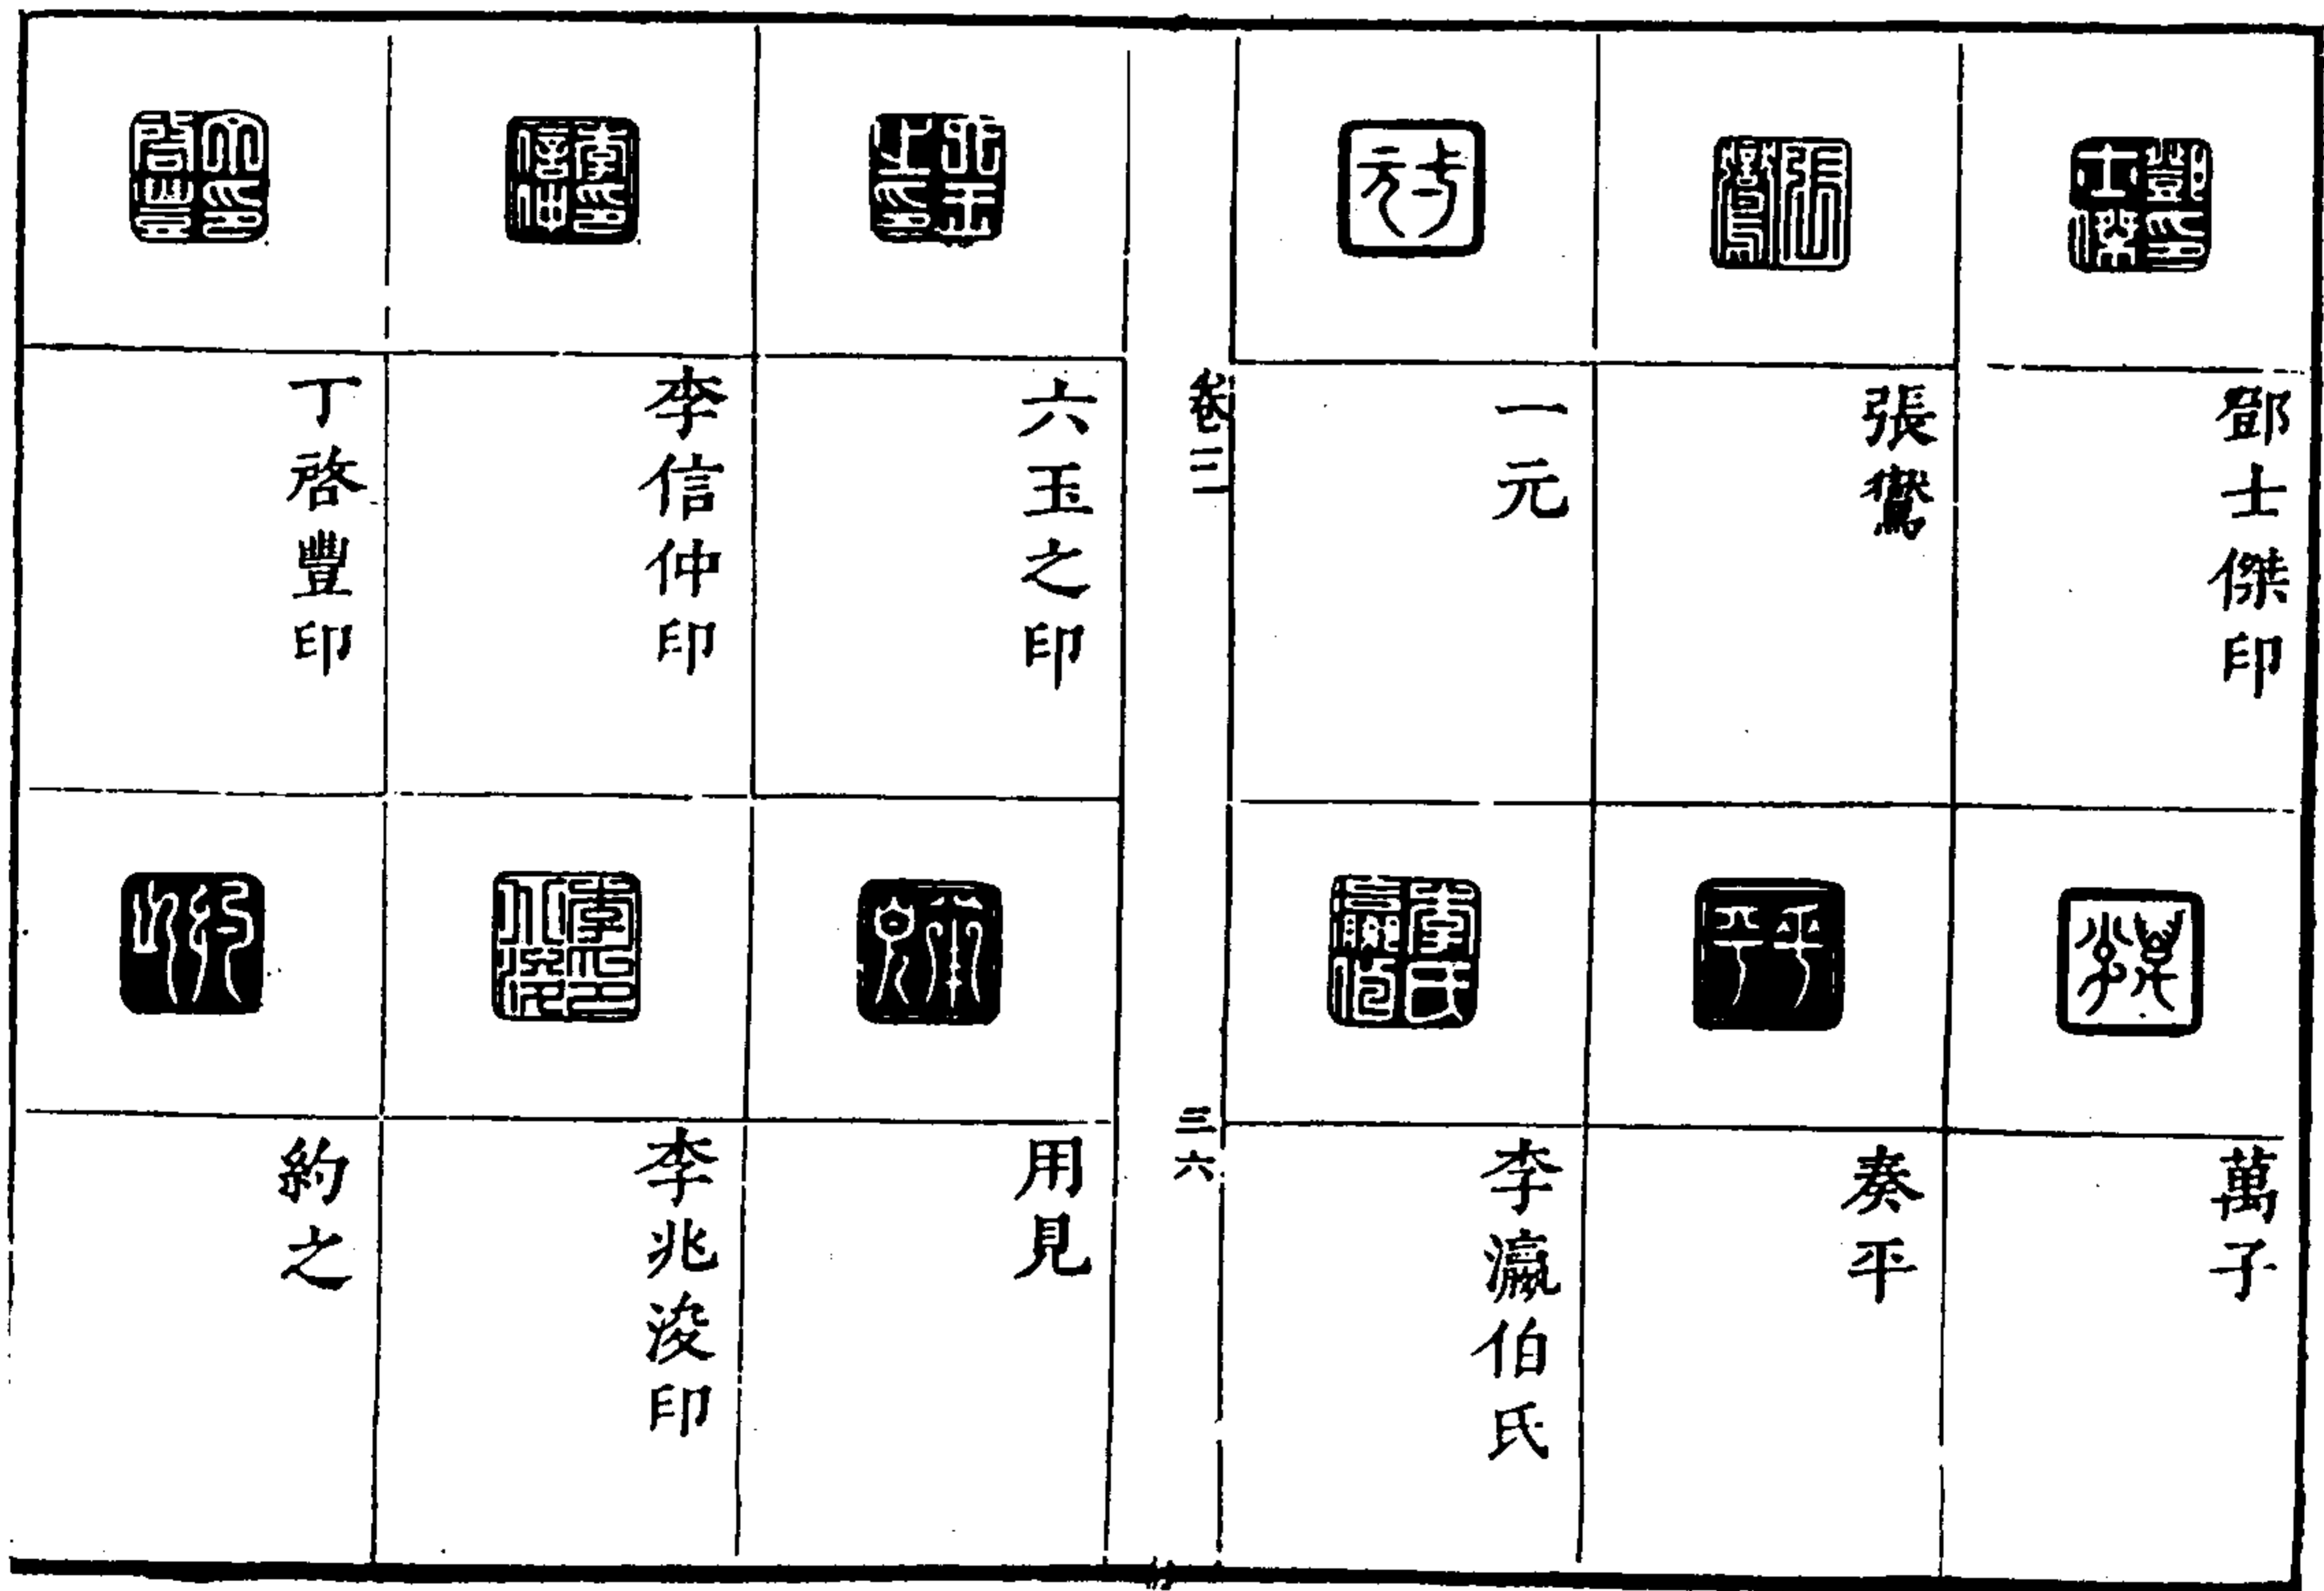 鄧士傑印
張鸑
一元
萬子
奏平
李瀛伯氏
卷三
三六
六玉之印
李信仲印
丁啓豐印
用見
李兆浚印
約之